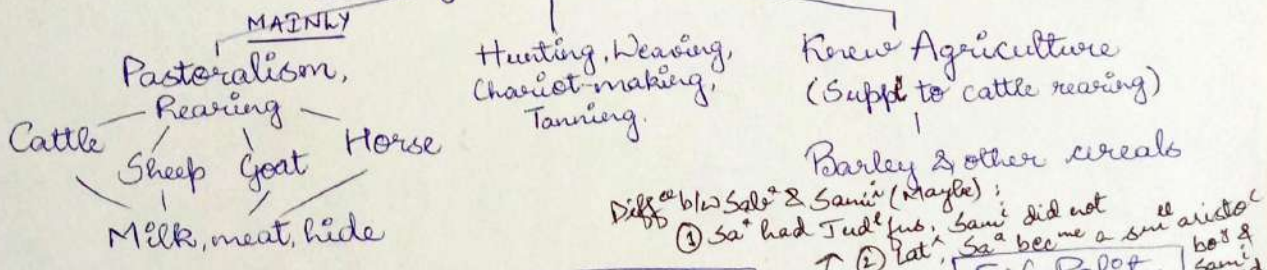 MAINLY
Pastoralism,
Rearing
Cattle Sheep Goat Horse
Milk, meat, hide
Hunting, Weaving,
Chariot-making,
Tanning.
Knew Agriculture
(Supplt to cattle rearing)
Barley & other cereals
Diffce b/w Saba & Sami (Maybe) :
① Sa had Judl fns, Sami did not
② Lat, Saa became a small aristoc